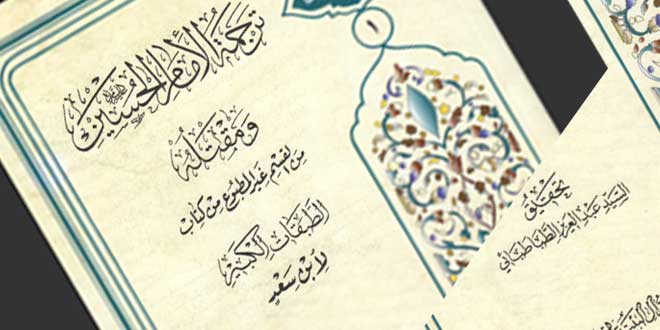 ١
ترجمة الإمام الحسين
ومقتله
من القسم غير المطبوع من كتاب
الطبقات الكبير
لابن سعد
بتحقيق
السيد عبد العزيز الطباطبائي